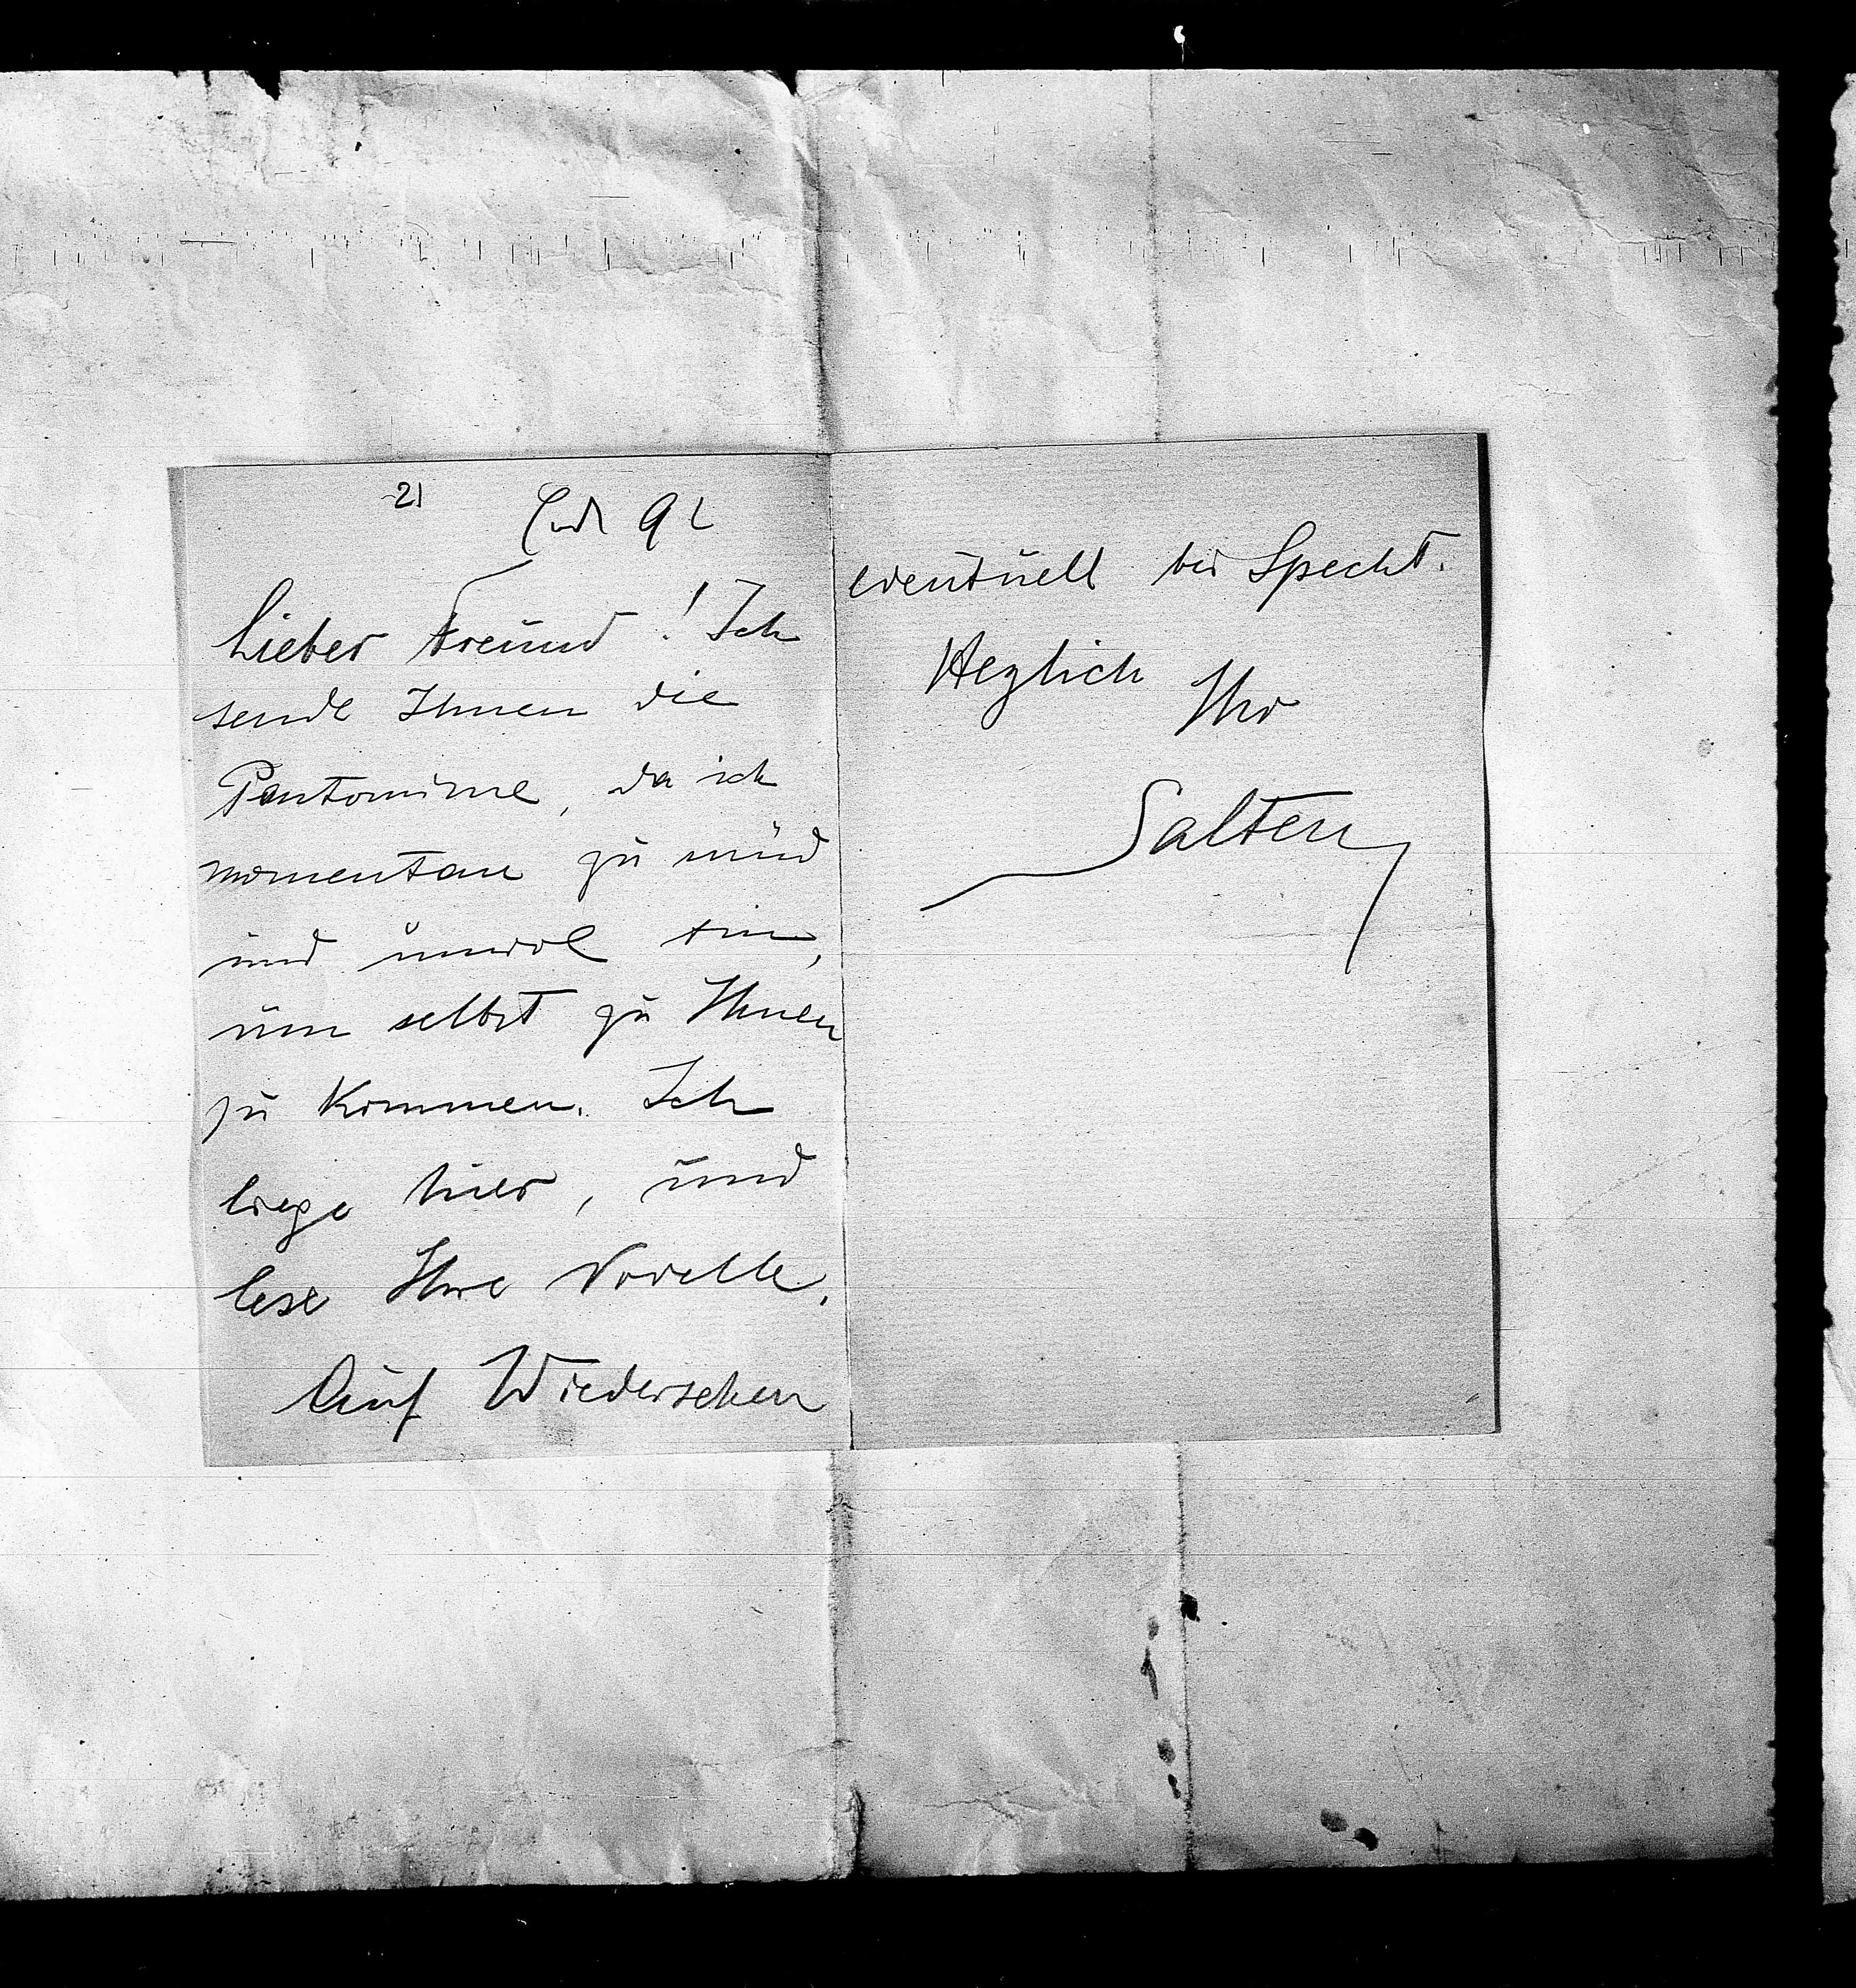 21
Ende 92
Lieber Freund! Ich
sende Ihnen die
Pantomime, da ich
momentan zu müd
und unwol bin,
um selbst zu Ihnen
zu kommen. Ich
liege hier, und
lese Ihre Novelle.
Auf Wiedersehen
eventuell bei Specht.
Hezlich
Ihr
Salten